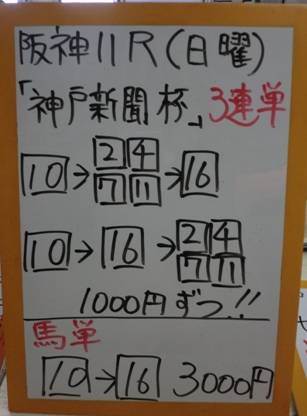 阪神11R(日曜)
「神戸新聞杯」3連単
10→2 4 7 11→16
10→16→2 4 7 11
1000円ずつ!!
馬単
10→16 3000円